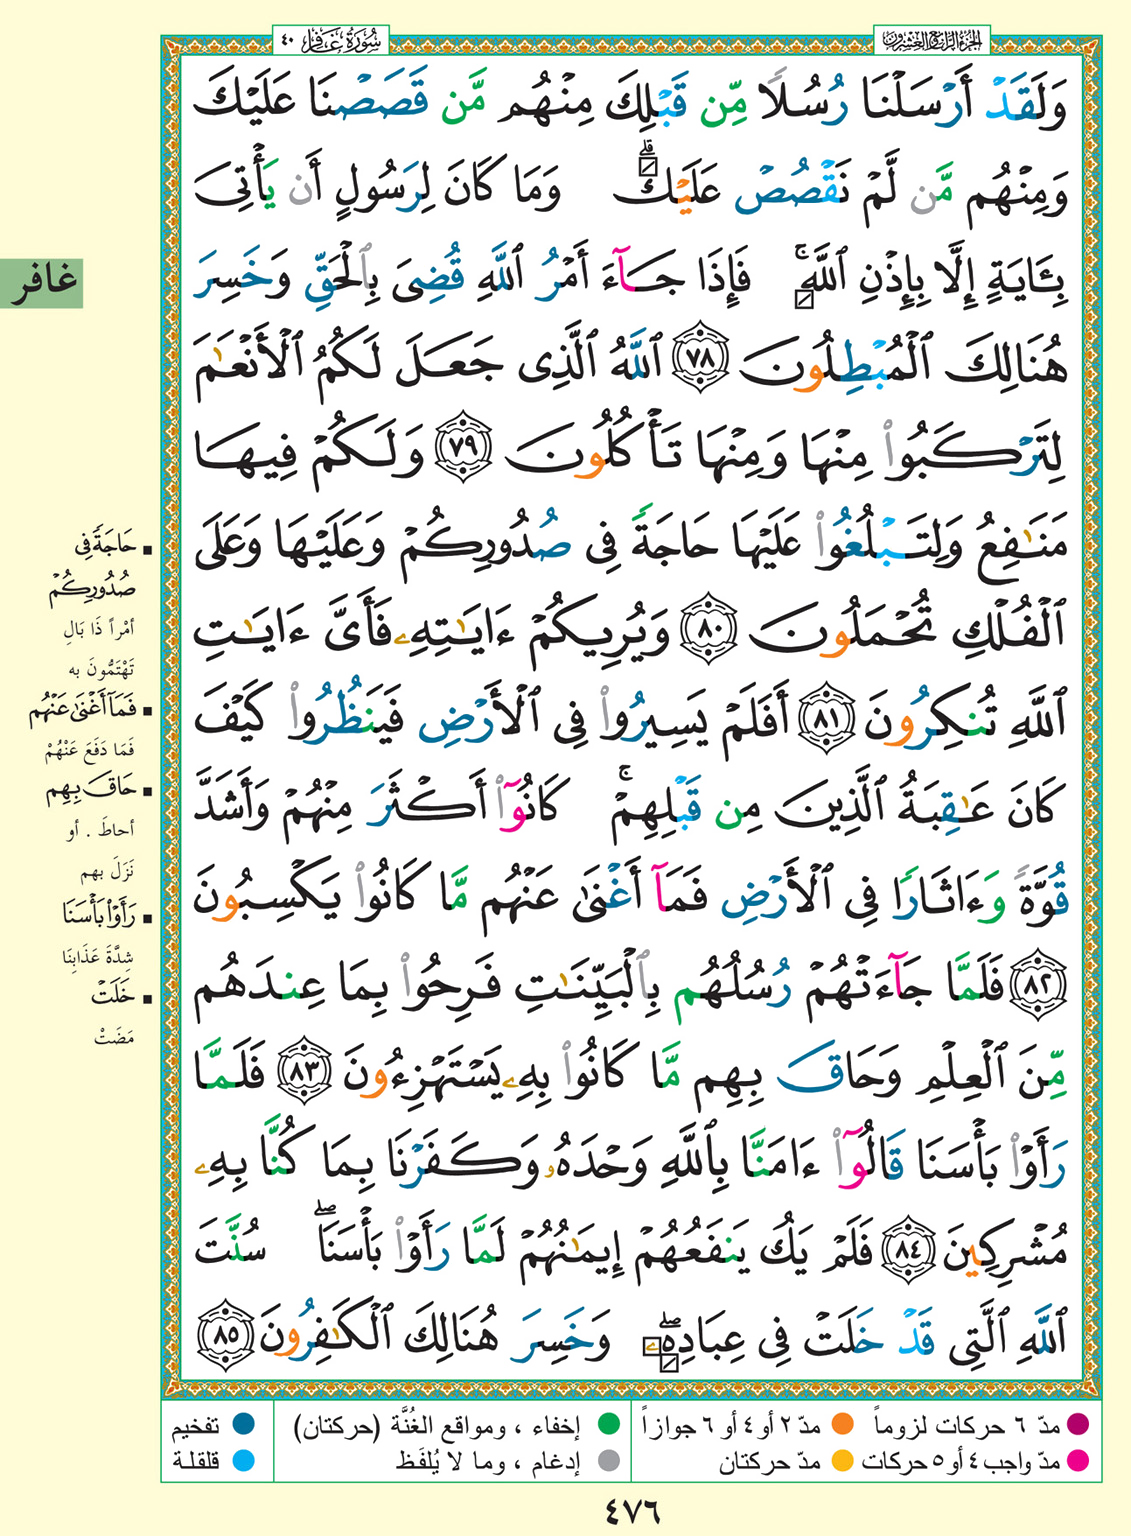 سُورَةُ غَافِر ٤٠
الجزء الرابع والعشرون
وَلَقَدْ أَرْسَلْنَا رُسُلًا مِّن قَبْلِكَ مِنْهُم مَّن قَصَصْنَا عَلَيْكَ
وَمِنْهُم مَّن لَّمْ نَقْصُصْ عَلَيْكَ ۗ وَمَا كَانَ لِرَسُولٍ أَن يَأْتِىَ
بِـَٔايَةٍ إِلَّا بِإِذْنِ ٱللَّهِ ۚ فَإِذَا جَآءَ أَمْرُ ٱللَّهِ قُضِىَ بِٱلْحَقِّ وَخَسِرَ
هُنَالِكَ ٱلْمُبْطِلُونَ ٧٨ ٱللَّهُ ٱلَّذِى جَعَلَ لَكُمُ ٱلْأَنْعَٰمَ
لِتَرْكَبُوا۟ مِنْهَا وَمِنْهَا تَأْكُلُونَ ٧٩ وَلَكُمْ فِيهَا
مَنَٰفِعُ وَلِتَبْلُغُوا۟ عَلَيْهَا حَاجَةً فِى صُدُورِكُمْ وَعَلَيْهَا وَعَلَى
ٱلْفُلْكِ تُحْمَلُونَ ٨٠ وَيُرِيكُمْ ءَايَٰتِهِۦ فَأَىَّ ءَايَٰتِ
ٱللَّهِ تُنكِرُونَ ٨١ أَفَلَمْ يَسِيرُوا۟ فِى ٱلْأَرْضِ فَيَنظُرُوا۟ كَيْفَ
كَانَ عَٰقِبَةُ ٱلَّذِينَ مِن قَبْلِهِمْ ۚ كَانُوٓا۟ أَكْثَرَ مِنْهُمْ وَأَشَدَّ
قُوَّةً وَءَاثَارًا فِى ٱلْأَرْضِ فَمَآ أَغْنَىٰ عَنْهُم مَّا كَانُوا۟ يَكْسِبُونَ
٨٢ فَلَمَّا جَآءَتْهُمْ رُسُلُهُم بِٱلْبَيِّنَٰتِ فَرِحُوا۟ بِمَا عِندَهُم
مِّنَ ٱلْعِلْمِ وَحَاقَ بِهِم مَّا كَانُوا۟ بِهِۦ يَسْتَهْزِءُونَ ٨٣ فَلَمَّا
رَأَوْا۟ بَأْسَنَا قَالُوٓا۟ ءَامَنَّا بِٱللَّهِ وَحْدَهُۥ وَكَفَرْنَا بِمَا كُنَّا بِهِۦ
مُشْرِكِينَ ٨٤ فَلَمْ يَكُ يَنفَعُهُمْ إِيمَٰنُهُمْ لَمَّا رَأَوْا۟ بَأْسَنَا ۖ سُنَّتَ
ٱللَّهِ ٱلَّتِى قَدْ خَلَتْ فِى عِبَادِهِۦ ۖ وَخَسِرَ هُنَالِكَ ٱلْكَٰفِرُونَ ٨٥
غافر
حَاجَةً فِى
صُدُورِكُمْ
أمْراً ذَا بَالٍ
تَهْتَمُّونَ به
فَمَآ أَغْنَىٰ عَنْهُم
فَمَا دَفَعَ عَنْهُمْ
حَاقَ بِهِم
أحاطَ . أو
نَزَلَ بهم
رَأَوْا۟ بَأْسَنَا
شِدَّةَ عَذَابِنَا
خَلَتْ
مَضَتْ
مدّ ٦ حركات لزوماً
مدّ ٢ أو ٤ أو ٦ جوازاً
إخفاء ، ومواقع الغُنَّة (حركتان)
تفخيم
مدّ واجب ٤ أو ٥ حركات
مدّ حركتان
إدغام ، وما لا يُلفَظ
قلقلة
٤٧٦